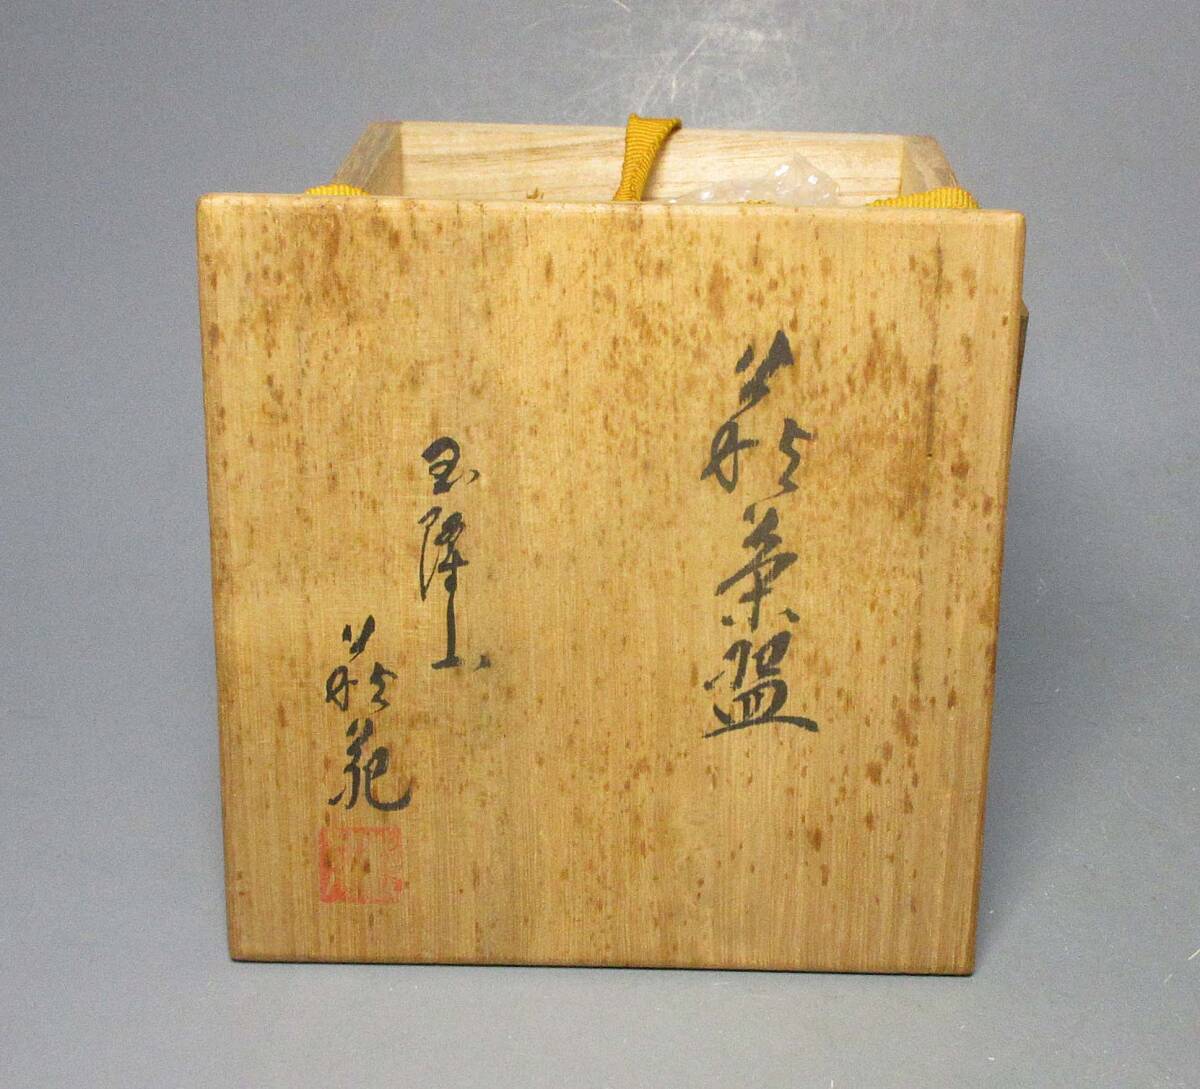 萩茶盌
玉隆山
萩苑